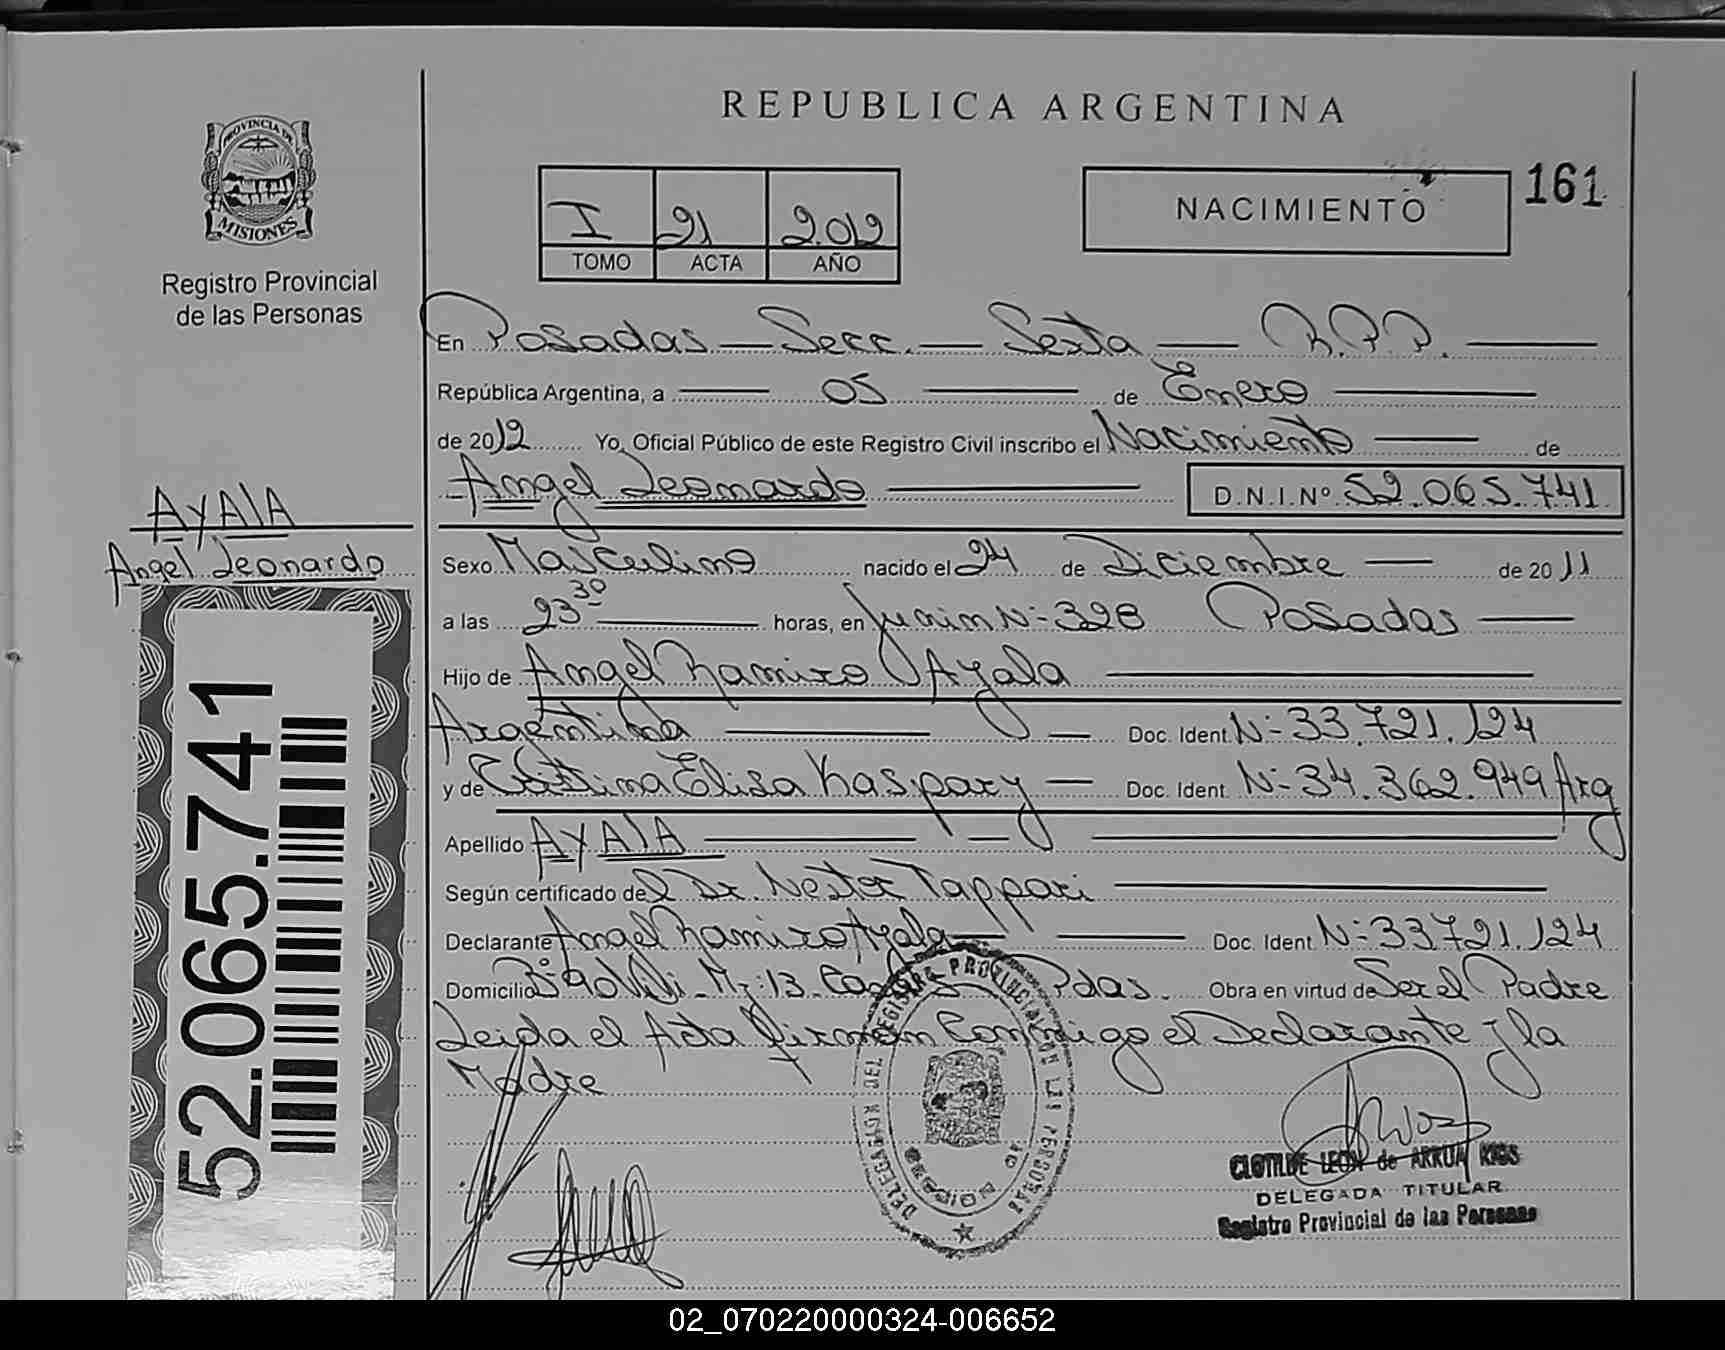 REPUBLICA ARGENTINA
PROVINCIA DE
MISIONES
Registro Provincial
de las Personas
I 21 2.012
TOMO ACTA AÑO
NACIMIENTO
161
En Posadas — Secc. — Sexta — R.P.P.
República Argentina, a 05 de Enero
de 2012 Yo, Oficial Público de este Registro Civil inscribo el Nacimiento de
Angel Leonardo D.N.I.Nº 52.065.741
AyAlA
Angel Leonardo
Sexo Masculino nacido el 24 de Diciembre de 2011
a las 23 30 horas, en Junin N:328 Posadas
Hijo de Angel Ramiro Ayala
Argentina Doc. Ident. N:33.721.124
y de Cristina Elisa Kaspary Doc. Ident. N:34.362.949 Arg
Apellido AyAlA
Según certificado del Dr. Nestor Tappari
Declarante Angel Ramiro Ayala Doc. Ident. N:33721.124
Domicilio Mz:13 Pdas. Obra en virtud de Ser el Padre
Leida el Acta firman Conmigo el Declarante y la
Madre
52.065.741
DELEGACION DEL REGISTRO PROVINCIAL DE LAS PERSONAS
CLOTILDE LEON de ARRUA RIOS
DELEGADA TITULAR
Registro Provincial de las Personas
02_070220000324-006652